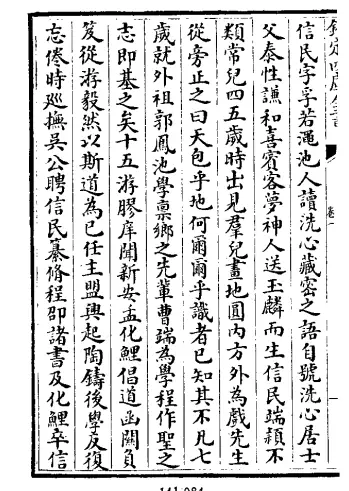 欽定四庫全書
卷一
信民字孚若澠池人讀洗心藏密之語自號洗心居士
父泰性謙和喜賓客夢神人送玉麟而生信民端穎不
類常兒四五歲時出見羣兒畫地圓內方外為戲先生
從旁正之曰天包乎地何爾爾乎識者已知其不凡七
歲就外祖郭鳳池學稟鄉之先輩曹瑞為學程作聖之
志即基之矣十五游膠庠聞新安孟化鯉倡道函關負
笈從游毅然以斯道為已任主盟興起陶鑄後學反復
忘倦時廵撫吳公聘信民纂脩程邵諸書及化鯉卒信
141-084